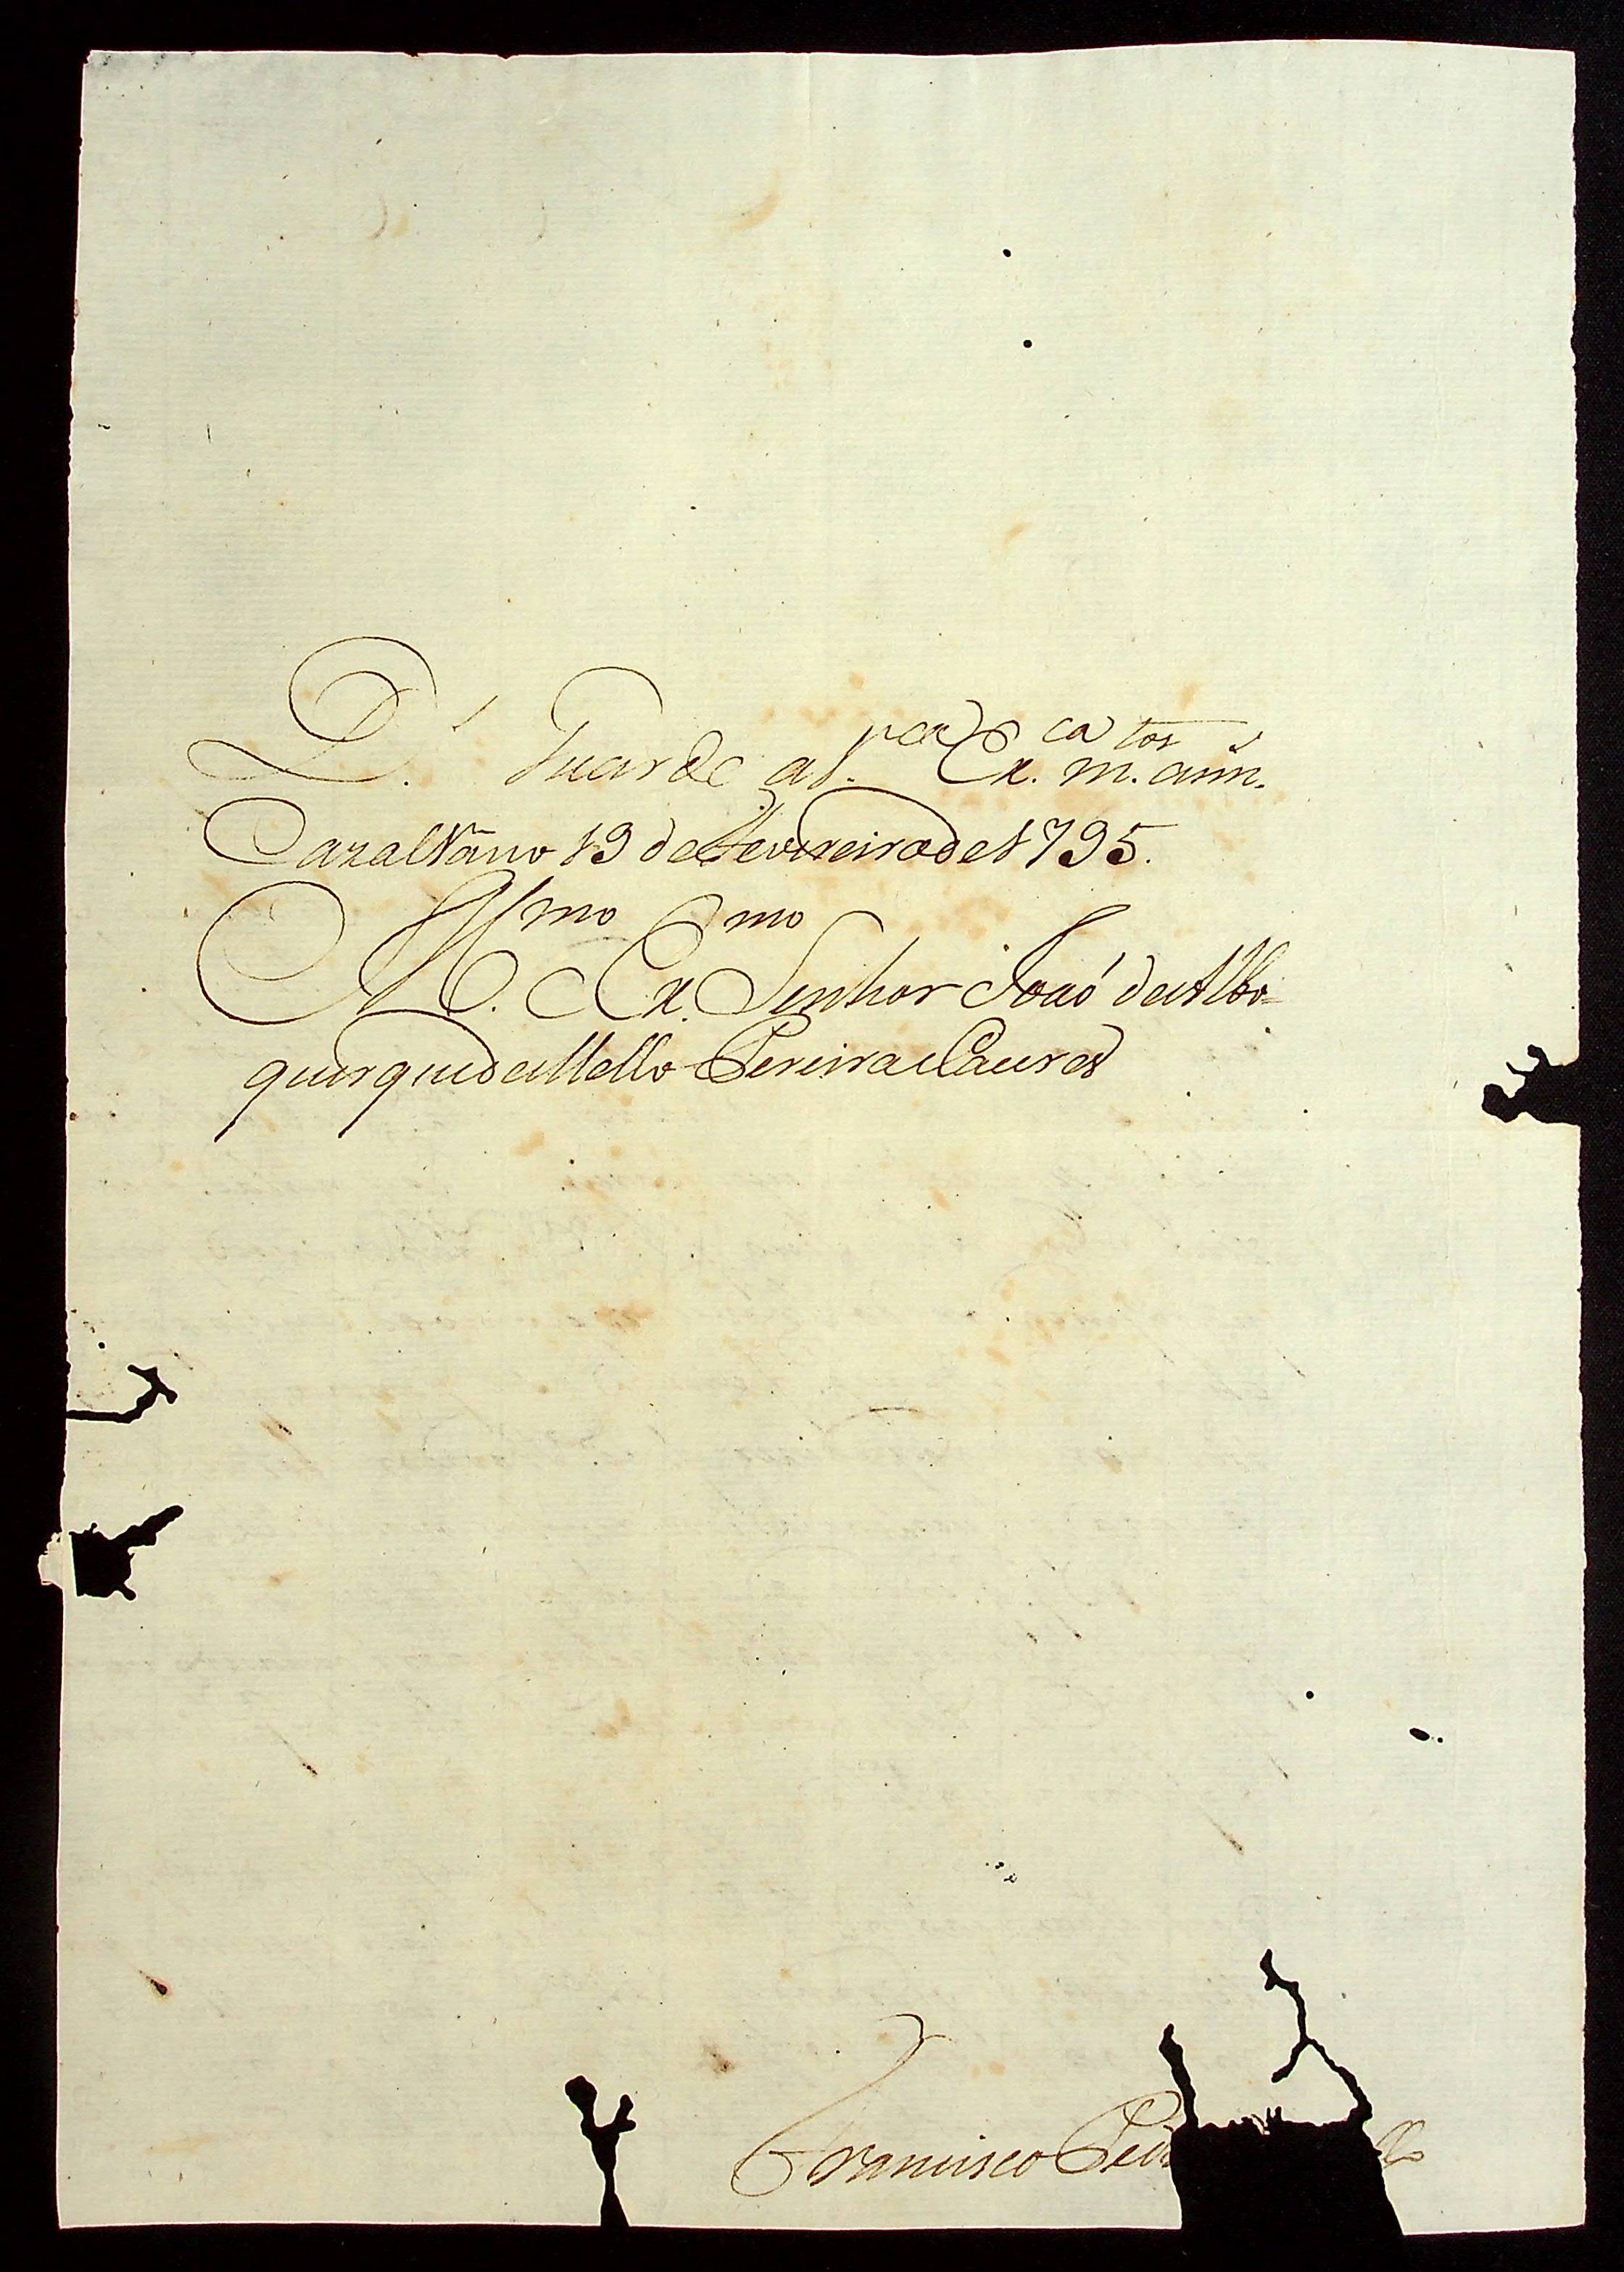 D.s Guarde a V.ca Ex.ca m.tos ann.s
Cazalvãno 19 de Fevereiro de 1795.
Ill.mo Ex.mo Senhor Joaó de Albo-
querque de Mello Pereira e Caceres
Francisco